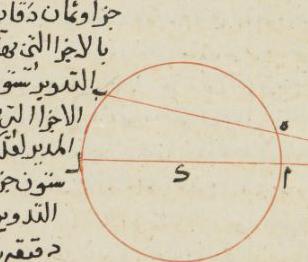 جزا وثمان دقايـ
بالاجزا التي بها
التدوير ستون
الاجزا التي
المدير لفلك
ستون جز
التدوير
دقيقه
ب
ه
د
ا